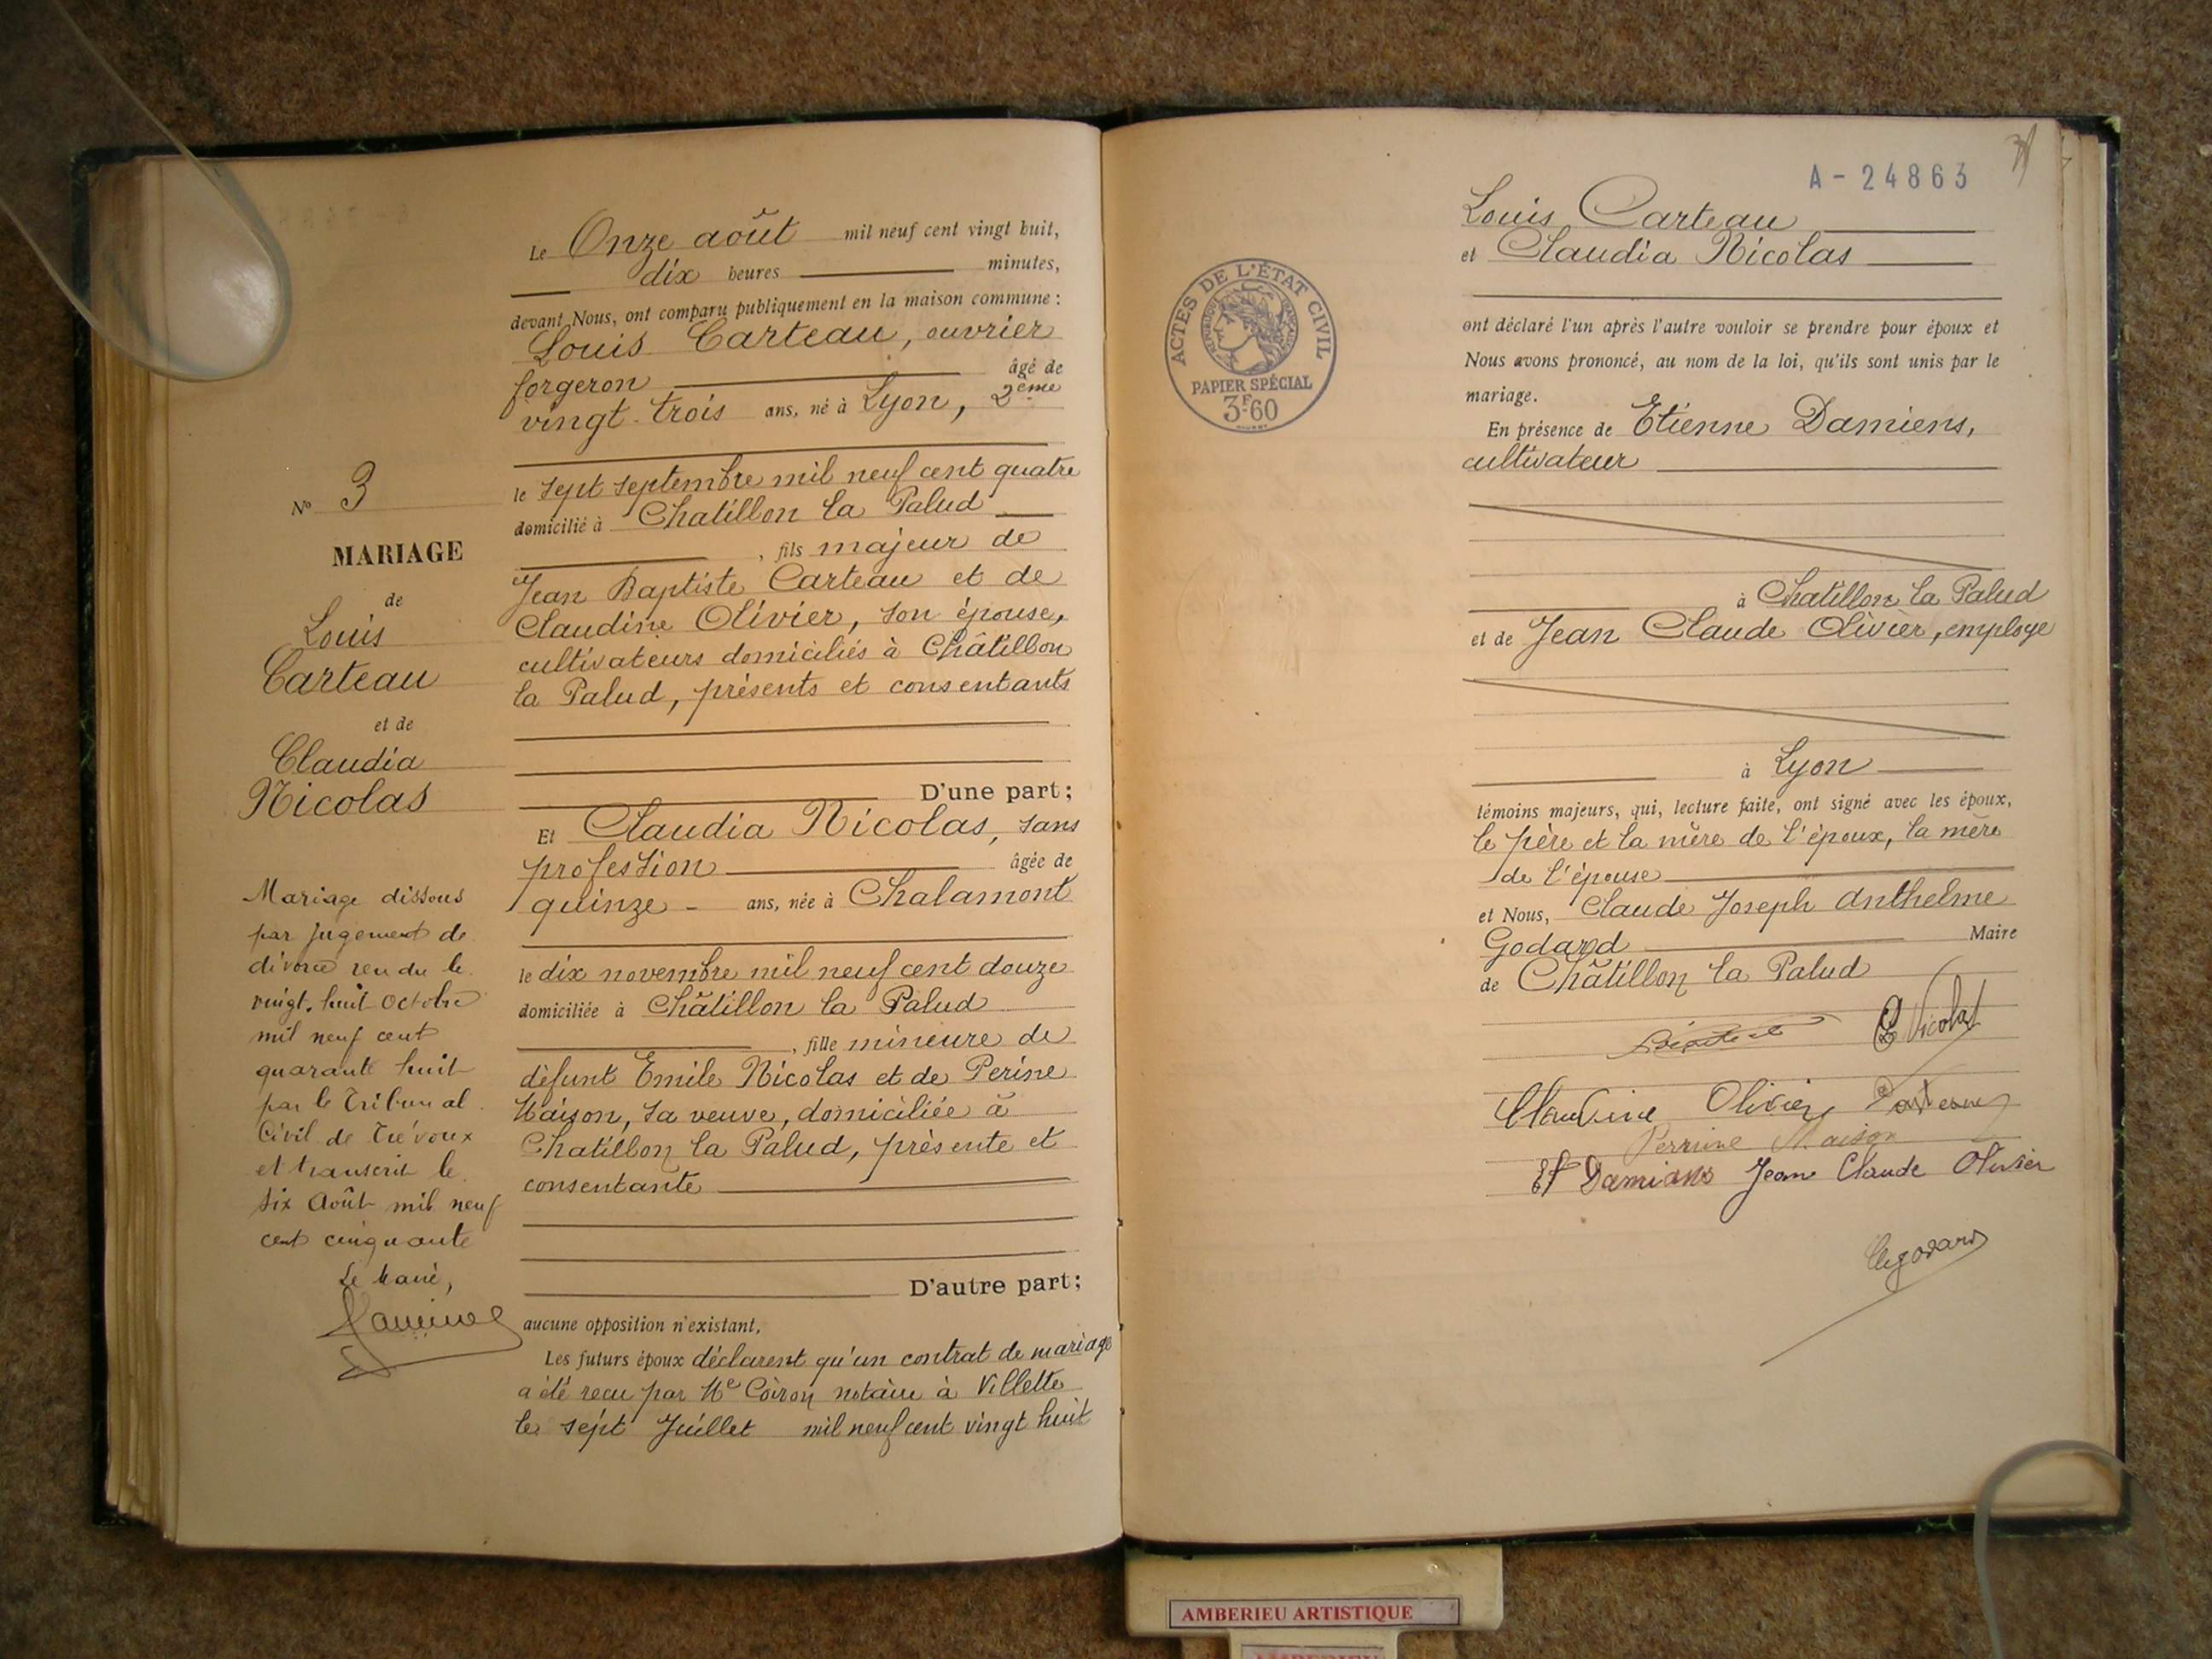 Nº 3
MARIAGE
de
Louis
Carteau
et de
Claudia
Nicolas
Mariage dissous
par jugement de
divorce rendu le
vingt-huit Octobre
mil neuf cent
quarante huit
par le Tribunal
Civil de Trévoux
et transcrit le
six Août mil neuf
cent cinquante
Le Maire,
Le Onze août mil neuf cent vingt huit,
dix heures minutes,
devant Nous, ont comparu publiquement en la maison commune :
Louis Carteau, ouvrier
forgeron âgé de
vingt-trois ans, né à Lyon, 2ème
le sept septembre mil neuf cent quatre
domicilié à Chatillon la Palud
, fils majeur de
Jean Baptiste Carteau et de
Claudine Olivier, son épouse,
cultivateurs domiciliés à Châtillon
la Palud, présents et consentants
D'une part ;
Et Claudia Nicolas, sans
profession âgée de
quinze - ans, née à Chalamont
le dix novembre mil neuf cent douze
domiciliée à Châtillon la Palud
, fille mineure de
défunt Emile Nicolas et de Perine
Maison, sa veuve, domiciliée à
Chatillon la Palud, présente et
consentante
D'autre part ;
aucune opposition n'existant,
Les futurs époux déclarent qu'un contrat de mariage
a été reçu par Me Coiron notaire à Villette
le sept Juillet mil neuf cent vingt huit
A - 24863
ACTES DE L'ÉTAT CIVIL
RÉPUBLIQUE FRANÇAISE
PAPIER SPÉCIAL
3F60
Louis Carteau
et Claudia Nicolas
ont déclaré l'un après l'autre vouloir se prendre pour époux et
Nous avons prononcé, au nom de la loi, qu'ils sont unis par le
mariage.
En présence de Etienne Damiens,
cultivateur
à Chatillon la Palud
et de Jean Claude Olivier, employé
à Lyon
témoins majeurs, qui, lecture faite, ont signé avec les époux,
le père et la mère de l'époux, la mère
de l'épouse
et Nous, Claude Joseph Anthelme
Godard Maire
de Châtillon la Palud
C Nicolas
Claudine Olivier Carteau
Perrine Maison
Et Damians Jean Claude Olivier
Clegodard
AMBERIEU ARTISTIQUE
AMBERIEU